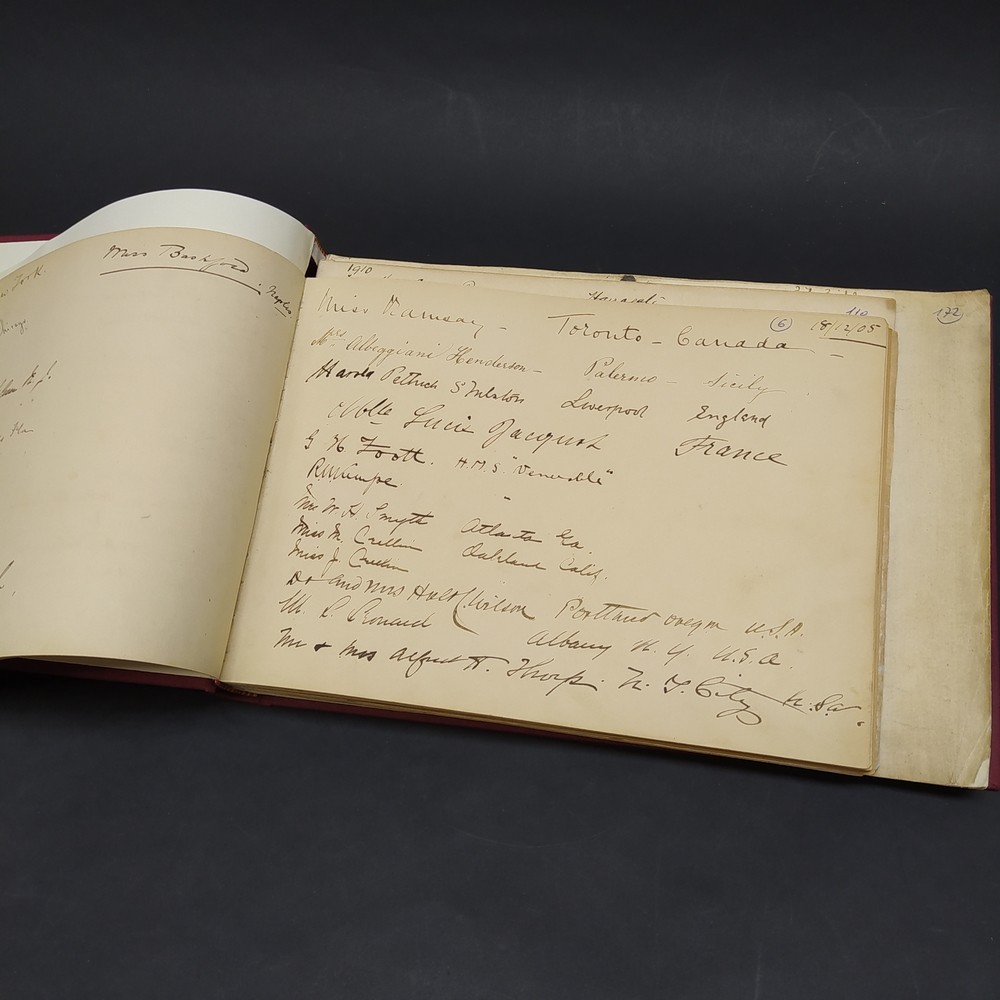 Miss Bashford
Naples
1910
Miss Ramsay - Toronto - Canada - 6 18/12/05
172
Mrs Albeggiani Henderson - Palermo - Sicily
Harold Liverpool England
Mlle Lucie Jacquot France
G H Foott. H.M.S. "Venerable"
R. W. Kempe. "
Mr W. H. Smyth Atlanta Ga.
Miss M. Crellin Oakland Calif.
Miss J. Crellin
Dr and Mrs Holt C. Wilson Portland oregon U.S.A.
W. L. Albany N. Y. U.S.A.
Mr & Mrs Alfred H. Thorp. N. Y. City U.S.A.